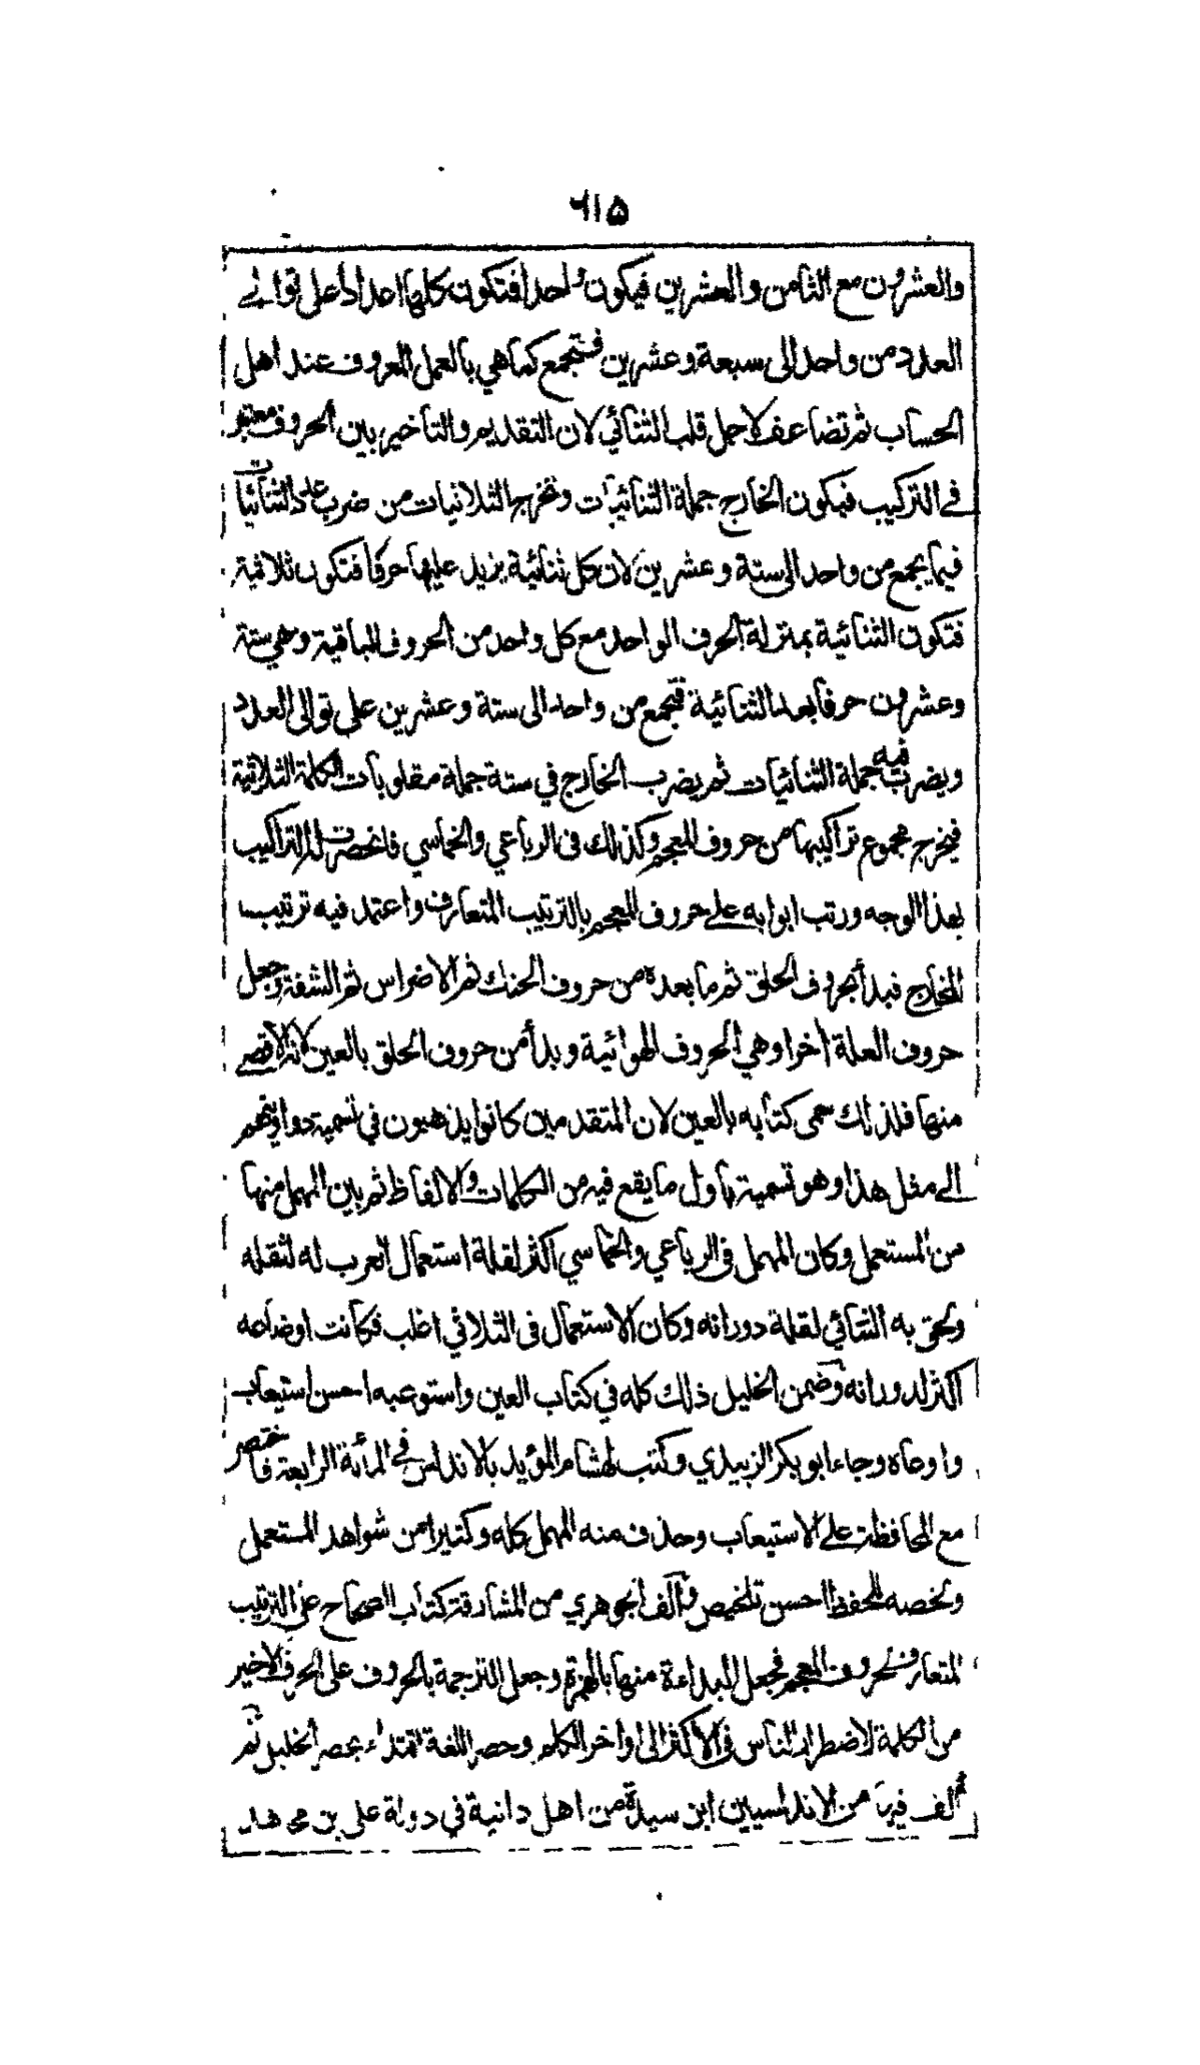 ٦١٥
والعشرون مع الثامن والعشرين فيكون واحدا فتكون كلها اعدادا على توالے
العدد من واحد الى سبعة وعشرين فتجمع كما هي بالعمل المعروف عند اهل
الحساب ثم تضاعف لاجل قلب الثنائي لان التقديم والتاخير بين الحروف معتبر
في التركيب فيكون الخارج جملة الثنائيات وتخرج الثلاثيات من ضرب عدد الثنائيات
فيما يجمع من واحد الى ستة وعشرين لان كل ثنائية يزيد عليها حرفا فتكون ثلاثية
فتكون الثنائية بمنزلة الحرف الواحد مع كل واحد من الحروف الباقية وهي ستة
وعشرون حرفا بعد الثنائية فتجمع من واحد الى ستة وعشرين على توالى العدد
ويضرب فيه جملة الثنائيات ثم يضرب الخارج في ستة جملة مقلوبات الكلمة الثلاثية
فيخرج مجموع تراكيبها من حروف المعجم وكذلك فى الرباعي والخماسي فانحصرت له التراكيب
بهذا الوجه ورتب ابوابه على حروف المعجم بالترتيب المتعارف واعتمد فيه ترتيب
المخارج فبدأ بحروف الحلق ثم ما بعده من حروف الحنك ثم الاضراس ثم الشفة وجعل
حروف العلة اخرا وهي الحروف الهوائية وبدأ من حروف الحلق بالعين لانه الاقصے
منها فلذلك سمى كتابه بالعين لان المتقدمين كانوا يذهبون في تسمية دواوينهم
الى مثل هذا وهو تسمية باول ما يقع فيه من الكلمات والالفاظ ثم بين المهمل منها
من المستعمل وكان المهمل فى الرباعي والخماسي اكثر لقلة استعمال العرب له لثقله
ولحق به الثنائي لقلة دورانه وكان الاستعمال فى الثلاثي اغلب فكانت اوضاعه
اكثر لدورانه وضمن الخليل ذلك كله في كتاب العين واستوعبه احسن استيعاب
واوعاه وجاء ابو بكر الزبيدي وكتب لهشام المؤيد بالاندلس في المائة الرابعة فاختصره
مع المحافظة على الاستيعاب وحذف منه المهمل كله وكثيرا من شواهد المستعمل
ولخصه للحفظ احسن تلخيص والف الجوهري من المشارقة كتاب الصحاح على الترتيب
المتعارف لحروف المعجم فجعل البداءة منها بالهمزة وجعل الترجمة بالحروف على الحرف الاخير
من الكلمة لاضطرار الناس فى الاكثر الى اواخر الكلم وحصر اللغة اقتداء بحصر الخليل ثم
الف فيها من الاندلسيين ابن سيدة من اهل دانية في دولة على بن مجاهد